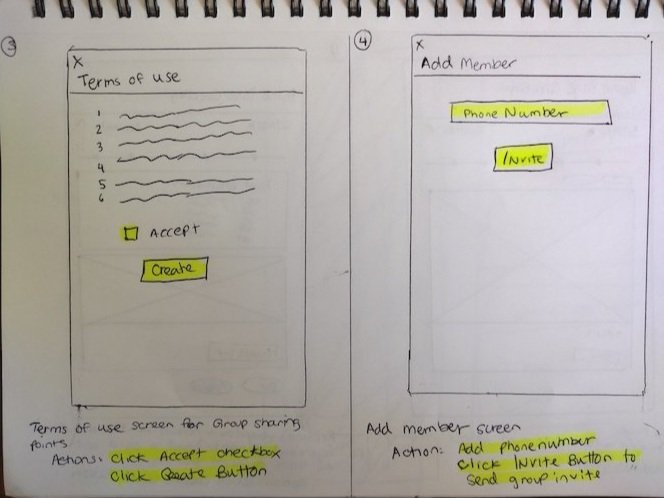 3
X
Terms of use
1
2
3
4
5
6
Accept
Create
Terms of use screen for Group sharing
points
Actions: Click Accept checkbox
Click Create Button
4
X
Add Member
Phone Number
Invite
Add member screen
Action: Add phonenumber
Click INvite Button to
Send group invite